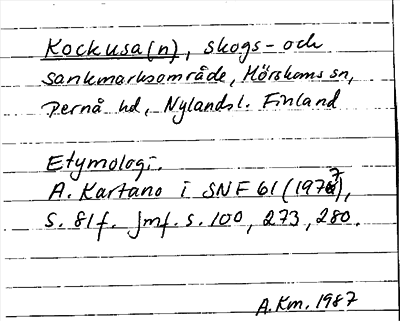 Kockusa(n), skogs- och
sankmarksområde, Mörskoms sn,
Pernå hd, Nylandsl. Finland
Etymologi.
A. Kartano i SNF 61 (1973),
s. 81f. Jmf. s. 100, 273, 280.
A.Km. 1987